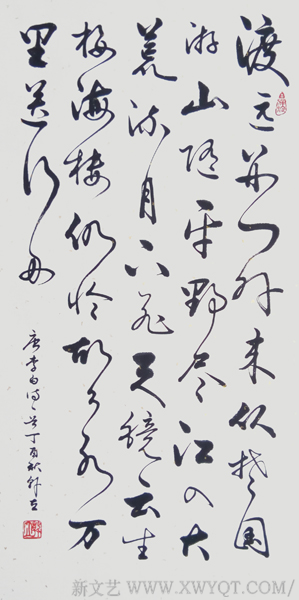 渡远荆门外来从楚国
游山随平野尽江入大
荒流月下飞天镜云生
结海楼仍怜故乡水万
里送行舟
唐李白诗 丁酉秋
新文艺 WWW.XWYQT.COM/